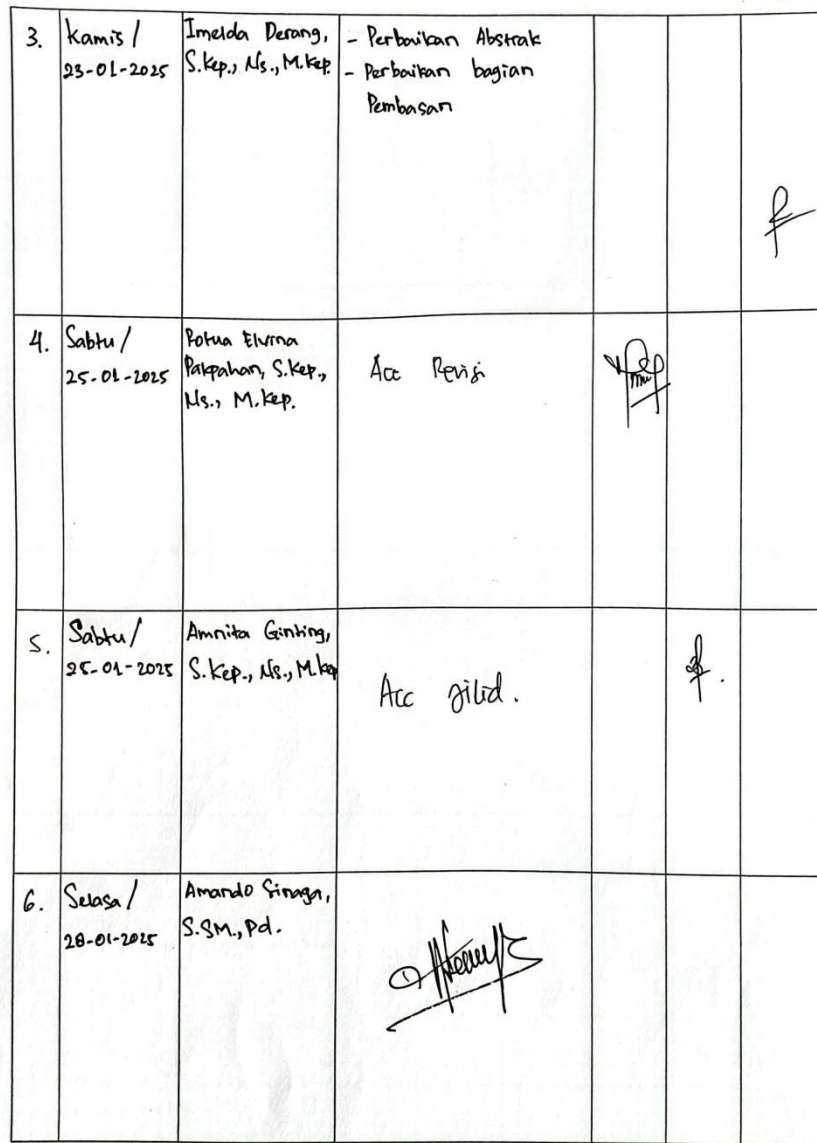 3.
Kamis /
23-01-2025
Imelda Derang,
S.Kep., Ns., M.Kep.
- Perbaikan Abstrak
- Perbaikan bagian
Pembasan
4.
Sabtu /
25-01-2025
Potua Elvrna
Pakpahan, S.Kep.,
Ns., M.Kep.
Acc Revisi
5.
Sabtu /
25-01-2025
Amnita Ginting,
S.Kep., Ns., M.Kep
Acc Jilid.
6.
Selasa /
28-01-2025
Amando Sinaga,
S.SM., Pd.